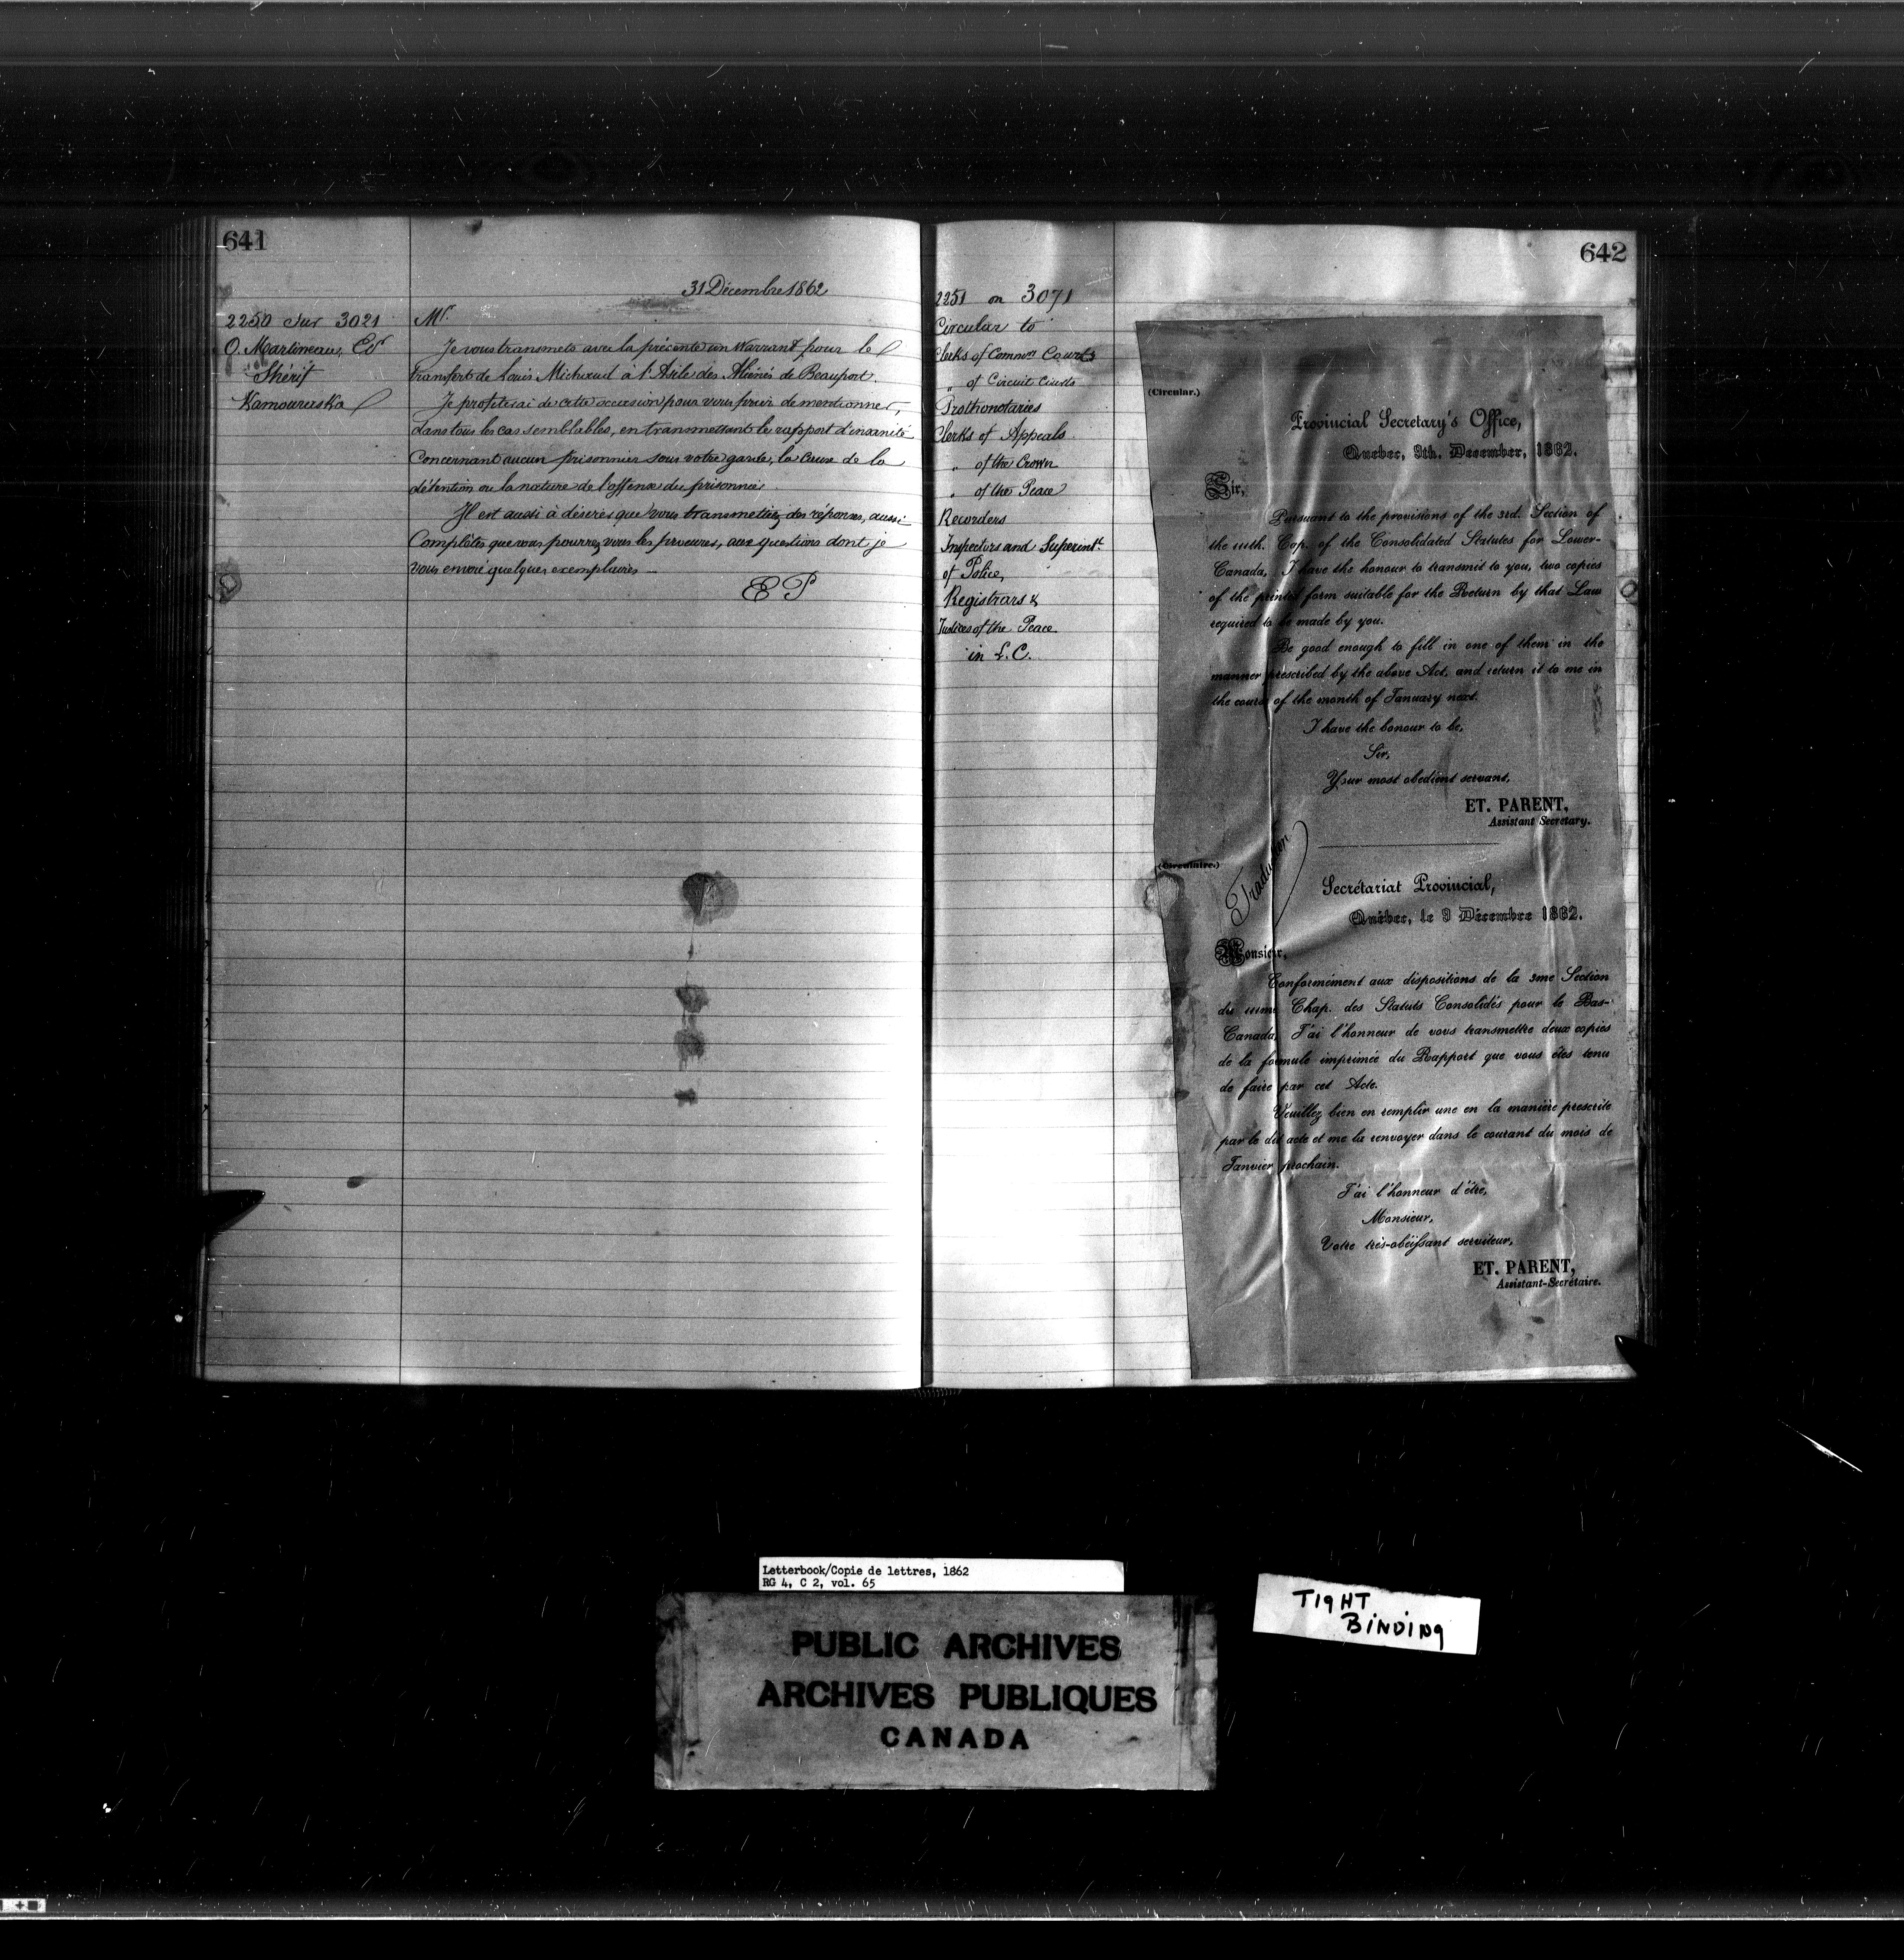 641
31 Décembre 1862
2250 Sur 3021
O. Martineau, Er
Shérif
Kamouraska
Mr.
Je vous transmets avec la présente un Warrant pour le
transfert de Louis Michaud à l'Asile des Aliénés de Beauport.
Je profiterai de cette occasion pour vous prier de mentionner,
dans tous les cas semblables, en transmettant le rapport d'insanité
concernant aucun prisonnier sous votre garde, la cause de la
détention ou la nature de l'offense du prisonnier.
Il est aussi à désirer que vous transmettiez des réponses, aussi
Complètes que vous pourrez vous les procurer, aux questions dont je
vous envoie quelques exemplaires —
EP
642
2251 on 3071
Circular to
Clerks of Commrs Courts
" of Circuit Courts
Prothonotaries
Clerks of Appeals
" of the Crown
" of the Peace
Recorders
Inspectors and Superintt
of Police,
Registrars &
Justices of the Peace
in L. C.
(Circular.)
Provincial Secretary's Office,
Quebec, 9th. December, 1862.
Sir,
Pursuant to the provisions of the 3rd. Section of
the 111th. Cap. of the Consolidated Statutes for Lower-
Canada, I have the honour to transmit to you, two copies
of the printed form suitable for the Return by that Law
required to be made by you.
Be good enough to fill in one of them in the
manner prescribed by the above Act, and return it to me in
the course of the month of January next.
I have the honour to be,
Sir,
Your most obedient servant,
ET. PARENT,
Assistant Secretary.
(Circulaire.)
Traduction
Secrétariat Provincial,
Québec, le 9 Décembre 1862.
Monsieur,
Conformément aux dispositions de la 3me Section
du 111me Chap. des Statuts Consolidés pour le Bas-
Canada, J'ai l'honneur de vous transmettre deux copies
de la formule imprimée du Rapport que vous êtes tenu
de faire par cet Acte.
Veuillez bien en remplir une en la manière prescrite
par le dit acte et me la renvoyer dans le courant du mois de
Janvier prochain.
J'ai l'honneur d'être,
Monsieur,
Votre très-obéissant serviteur,
ET. PARENT,
Assistant-Secrétaire.
Letterbook/Copie de lettres, 1862
RG 4, C 2, vol. 65
PUBLIC ARCHIVES
ARCHIVES PUBLIQUES
CANADA
TIGHT
BINDING